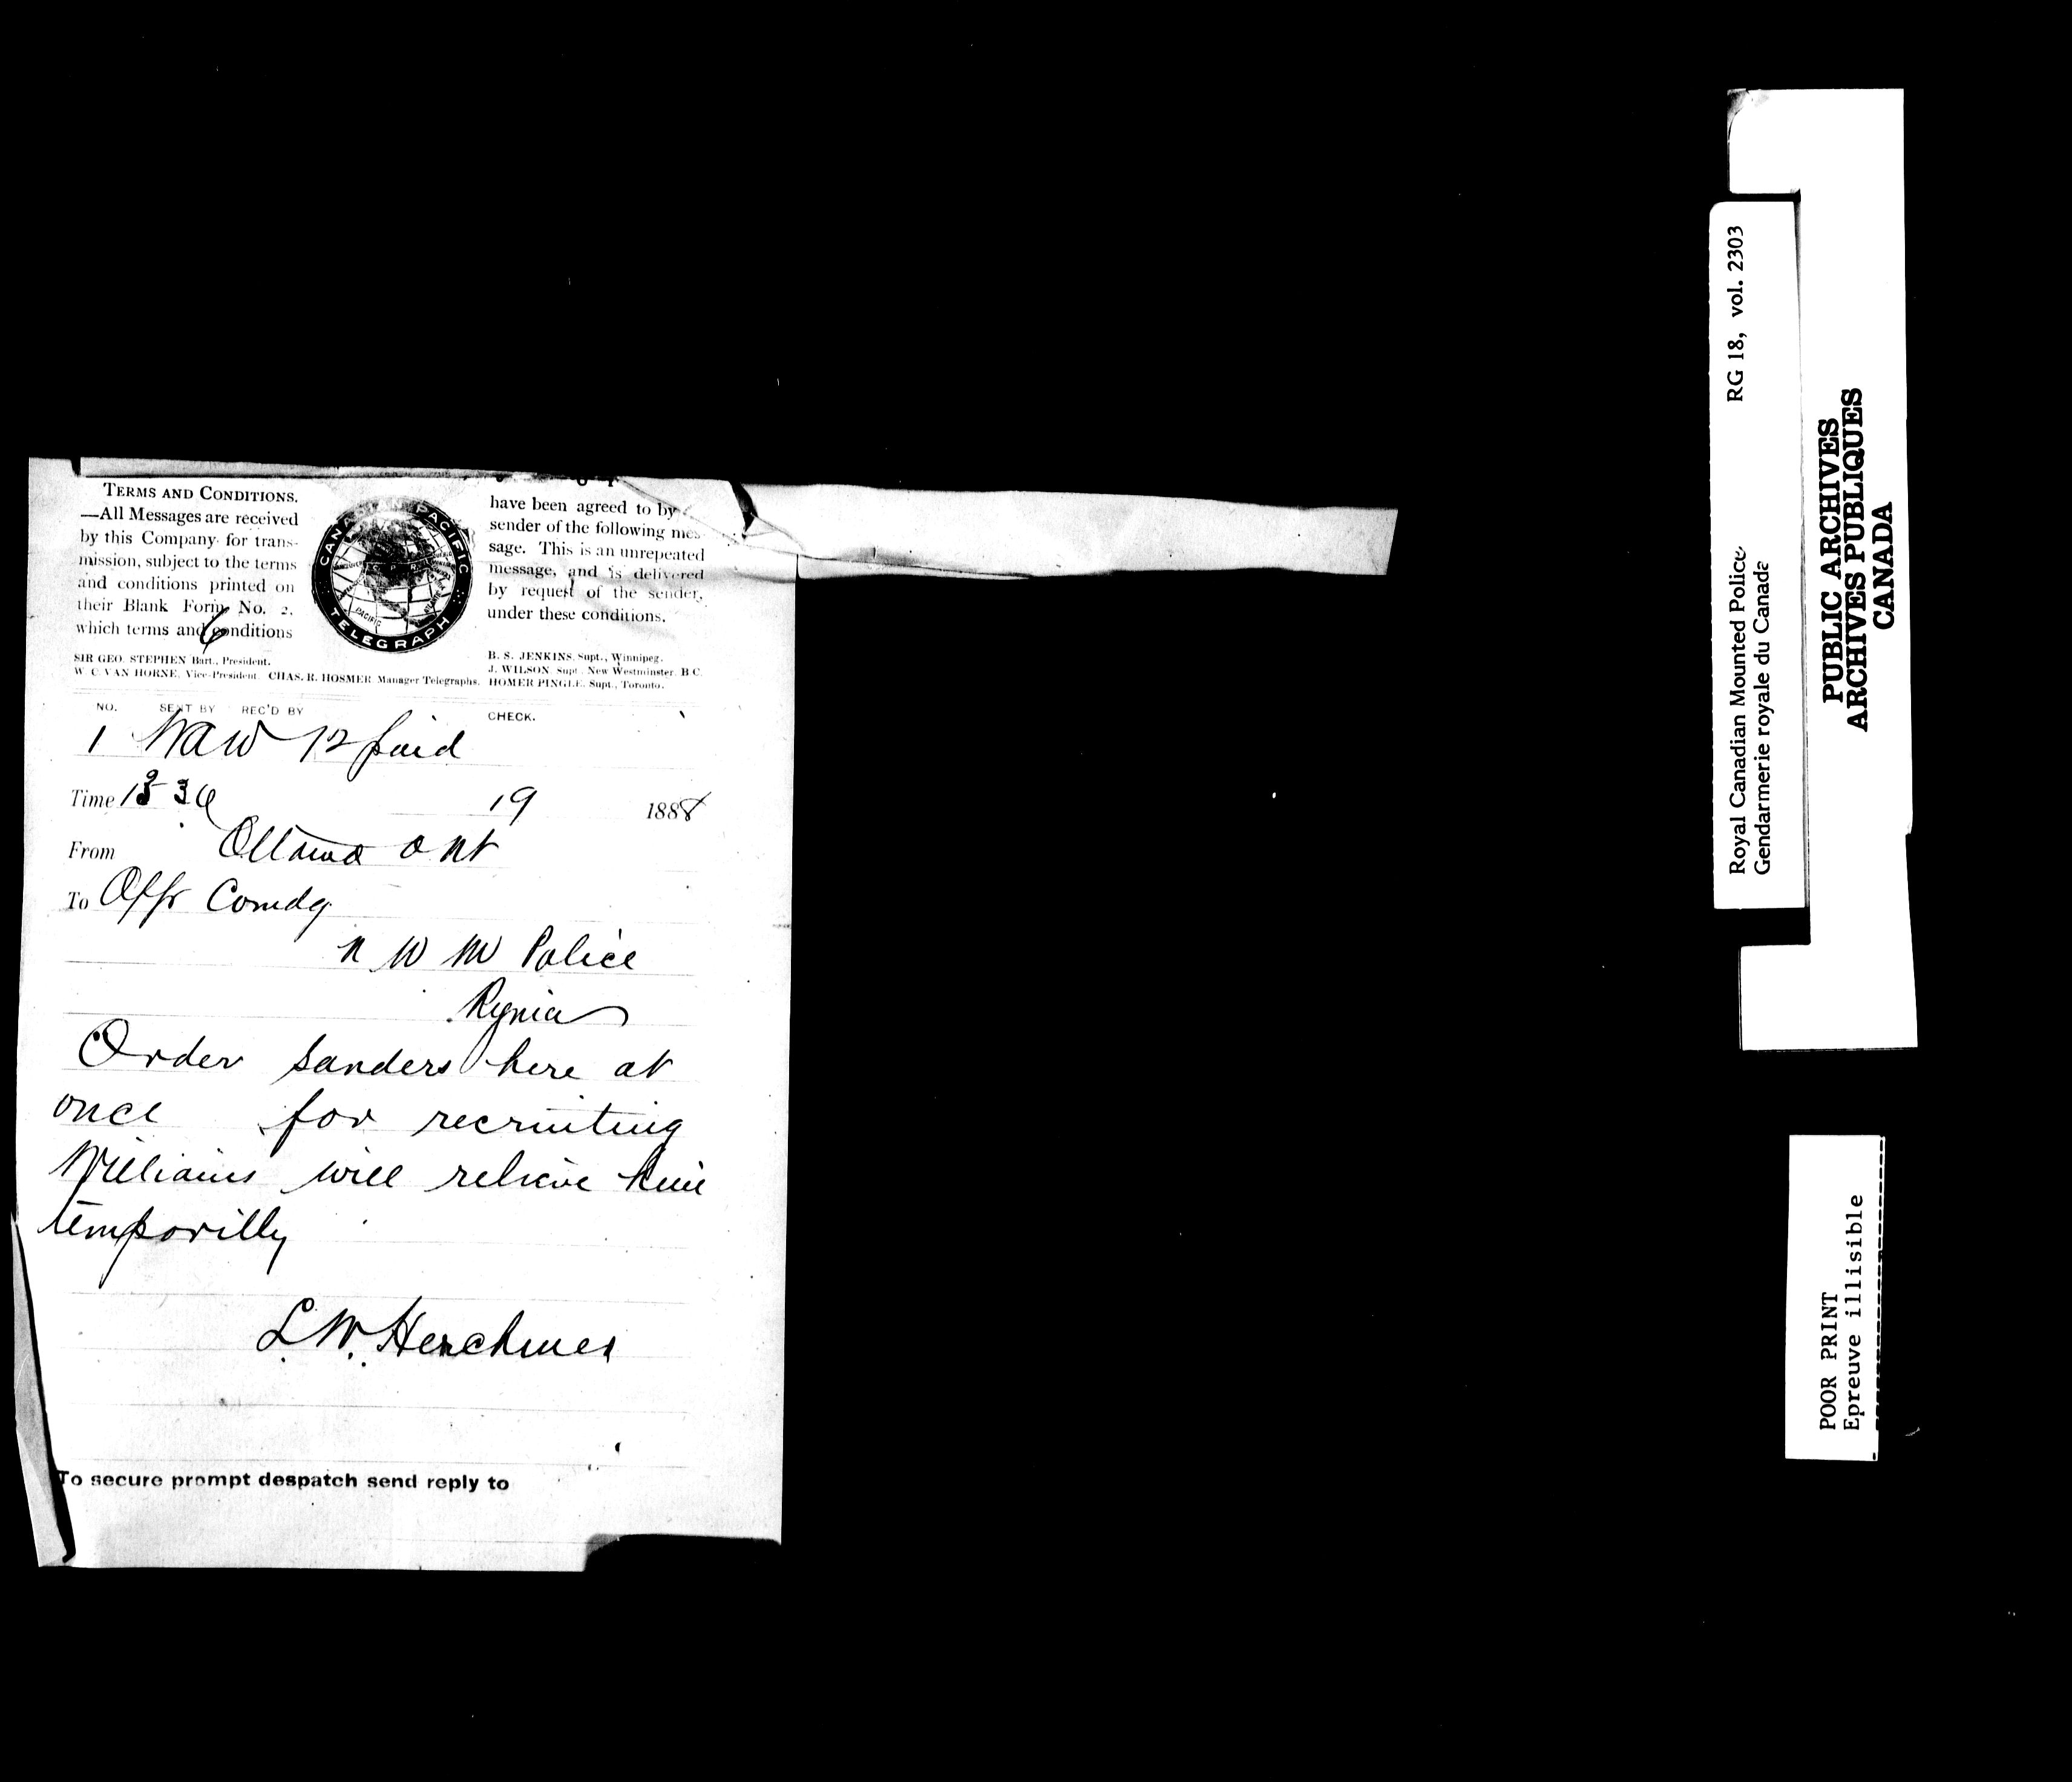 TERMS AND CONDITIONS.
—All Messages are received
by this Company for trans-
mission, subject to the terms
and conditions printed on
their Blank Form No. 2.
which terms and conditions
CANADIAN PACIFIC
TELEGRAPH
have been agreed to by
sender of the following mes-
sage. This is an unrepeated
message, and is delivered
by request of the sender,
under these conditions.
SIR GEO. STEPHEN Bart., President.
W. C. VAN HORNE, Vice-President. CHAS. R. HOSMER Manager Telegraphs.
B. S. JENKINS, Supt., Winnipeg.
J. WILSON, Supt., New Westminster, B C.
HOMER PINGLE, Supt., Toronto.
NO. SENT BY REC'D BY CHECK.
1 12 paid
Time 19 1888
From Ottawa Ont
To Offr Comdg
N W M Police
Order Sanders here at
once for recruiting
Williams will relieve him
temporilly
L. W. Herchmer
To secure prompt despatch send reply to
RG 18, vol. 2303
Royal Canadian Mounted Police
Gendarmerie royale du Canada
PUBLIC ARCHIVES
ARCHIVES PUBLIQUES
CANADA
POOR PRINT
Epreuve illisible